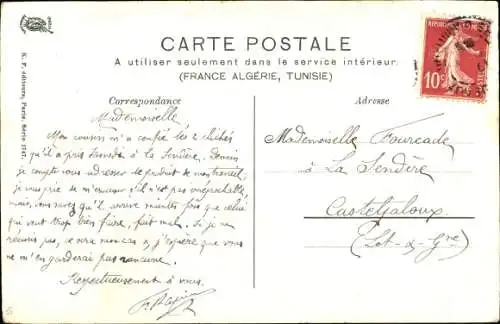 CARTE POSTALE
A utiliser seulement dans le service intérieur
(FRANCE ALGÉRIE, TUNISIE)
Correspondance
Adresse
K. F. éditeurs, Paris. Série 1747.
10c
Mademoiselle
Mon cousin m'a confié les 2 clichés
qu'il a pris samedi à La Sendère. Demain
je compte vous adresser le produit de mon travail,
je vous prie de m'excuser s'il n'est pas irréprochable
mais, vous savez qu'il arrive maintes fois que celui
qui veut trop bien faire, fait mal. Si je ne
réussis pas, ce sera mon cas et j'espère que vous
ne m'en garderez pas rancune.
Respectueusement à vous.
Mademoiselle Fourcade
à La Sendère
Casteljaloux
(Lot-&-Gne)